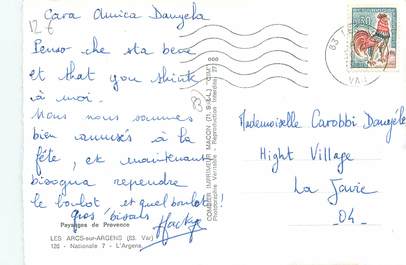 12 €
Cara Amica Danyela
Penso che sta bene
et that you think
à moi.
Nous nous sommes
bien amusés à la
fête, et maintenant
bisogna reprendre
le boulot et quel boulot.
gros bisous
Jacky
Paysages de Provence
LES ARCS-sur-ARGENS (83. Var)
126 - Nationale 7 - L'Argens
COMBIER IMPRIMEUR MACON (71. S.-&-L.) "CIM"
Photographie Véritable - Reproduction Interdite
83
0,30
83
VAR
Mademoiselle Carobbi Danyéle
Hight Village
La Javie
04